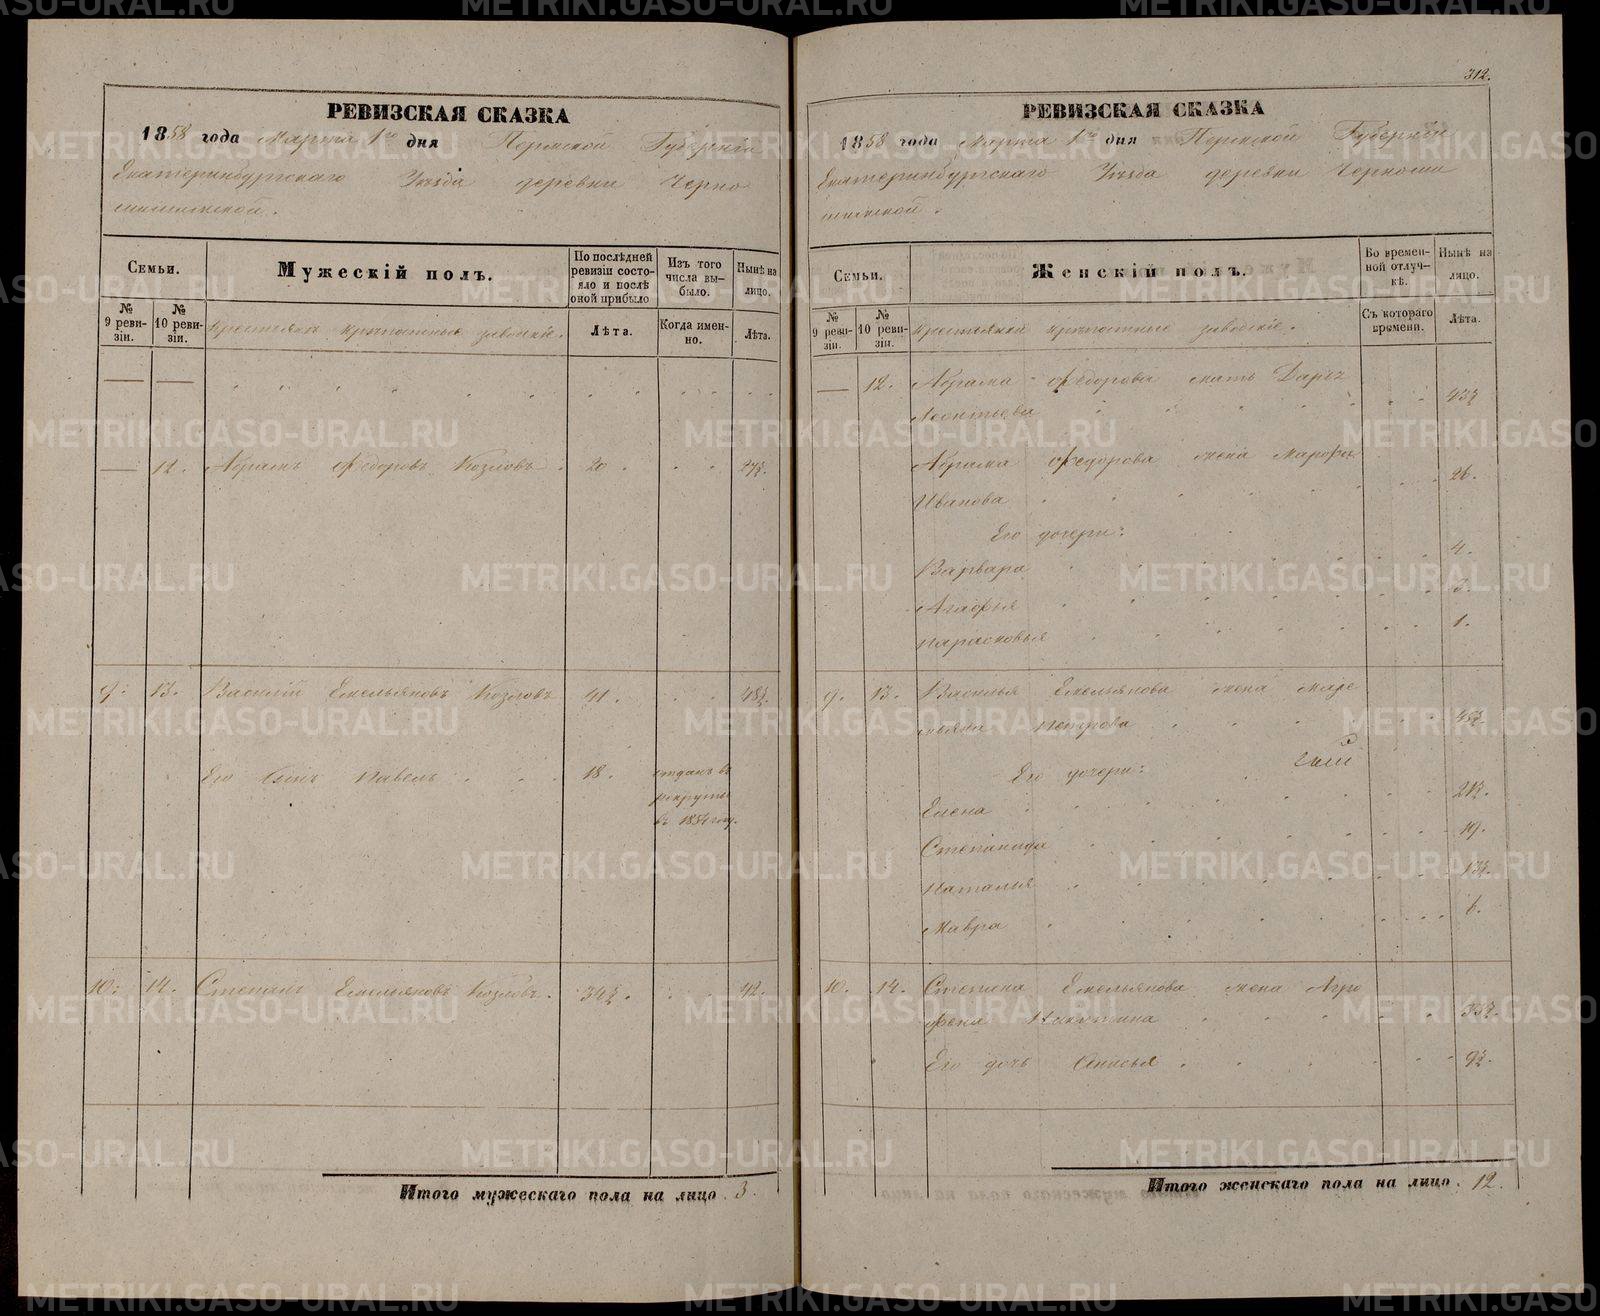 РЕВИЗСКАЯ СКАЗКА
1858 года Марта 1го дня Пермской Губерніи
Екатеринбургскаго Уѣзда деревни Черно
шишимской.
Семьи.
Мужескій полъ.
По послѣдней ревизіи состояло и послѣ оной прибыло
Изъ того числа выбыло.
Нынѣ на лицо.
№ 9 ревизіи.
№ 10 ревизіи.
Крестьянъ крѣпостные заводскіе.
Лѣта.
Когда именно.
Лѣта.
— 12. Абрамъ Федоровъ Козловъ. 20. 27½.
9. 13. Василій Емельяновъ Козловъ 41. 48½.
Его сынъ Павелъ 18. отданъ въ
рекруты
въ 1854 году.
10. 14. Степанъ Емельяновъ Козловъ. 34½. 42.
Итого мужескаго пола на лицо 3.
312.
РЕВИЗСКАЯ СКАЗКА
1858 года Марта 1го дня Пермской Губерніи
Екатеринбургскаго Уѣзда деревни Черноши
шимской.
Семьи.
Женскій полъ.
Во временной отлучкѣ.
Нынѣ на лицо.
№ 9 ревизіи.
№ 10 ревизіи.
Крестьянки крѣпостные заводскіе.
Съ котораго времени.
Лѣта.
— 12. Абрама Федорова мать Дарья
Леонтьева 43½
Абрама Федорова жена Марфа
Иванова 26.
Его дочери:
Варвара 4.
Агафья 3.
Парасковья 1.
9. 13. Василья Емельянова жена Маре
мьяна Петрова 45½.
Его дочери:
Елена 21½.
Степанида 19.
Наталья 13½.
Мавра 6.
10. 14. Степана Емельянова жена Агро
фена Никитина 35½.
Его дочь Анисья 9½.
Итого женскаго пола на лицо 12.
METRIKI.GASO-URAL.RU